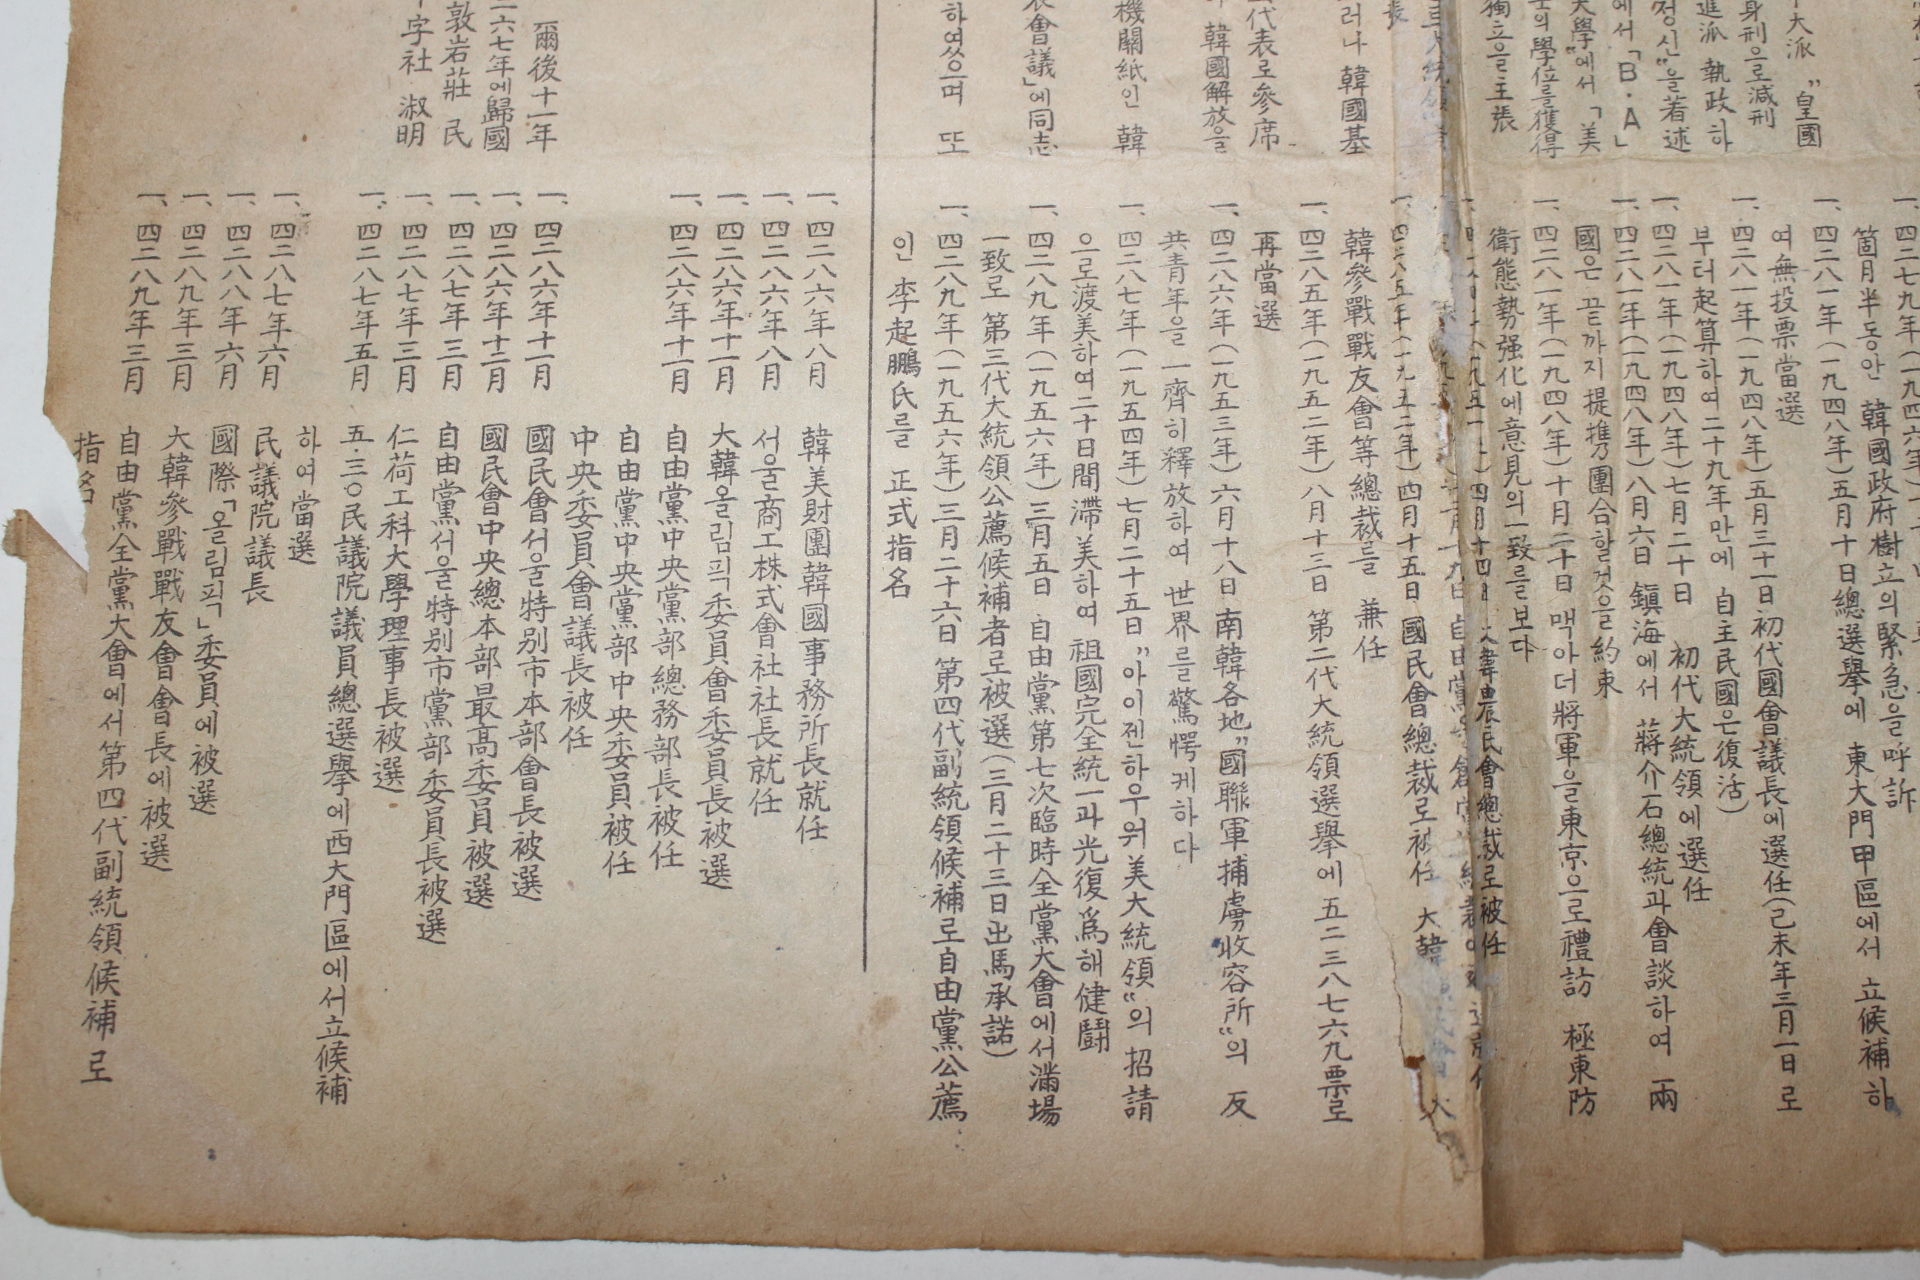 大派 "皇國
身刑으로減刑
進派 執政하
정신"을著述
에서「B·A」
大學"에서「美
의學位를獲得
獨立을主張
러나 韓國基
代表로參席
韓國解放을
機關紙인 韓
會議」에同志
하였으며 또
爾後十一年
二六七年에歸國
敦岩莊 民
字社 淑明
一、四二七九年(一九四六年)
箇月半동안 韓國政府樹立의緊急을呼訴
一、四二八一年(一九四八年)五月十日總選擧에 東大門甲區에서 立候補하
여無投票當選
一、四二八一年(一九四八年)五月三十一日初代國會議長에選任(己未年三月一日로
부터起算하여二十九年만에 自主民國은復活)
一、四二八一年(一九四八年)七月二十日 初代大統領에選任
一、四二八一年(一九四八年)八月六日 鎭海에서 蔣介石總統과會談하여 兩
國은 끝까지提携團合할것을約束
一、四二八一年(一九四八年)十月二十日 맥아더將軍을東京으로禮訪 極東防
衛態勢强化에意見의一致를보다
四月十四日 大韓農民會總裁로被任
一、四二八五年(一九五二年)四月十五日 國民會總裁로被任 大韓
韓參戰戰友會等總裁를 兼任
一、四二八五年(一九五二年)八月十三日 第二代大統領選擧에 五二三八七六九票로
再當選
一、四二八六年(一九五三年)六月十八日 南韓各地"國聯軍捕虜收容所"의 反
共青年을 一齊히釋放하여 世界를驚愕케하다
一、四二八七年(一九五四年)七月二十五日"아이젠하우워美大統領"의 招請
으로渡美하여二十日間滯美하여 祖國完全統一과光復爲해健鬪
一、四二八九年(一九五六年)三月五日 自由黨第七次臨時全黨大會에서滿場
一致로 第三代大統領公薦候補者로被選(三月二十三日出馬承諾)
一、四二八九年(一九五六年)三月二十六日 第四代副統領候補로自由黨公薦
인 李起鵬氏를 正式指名
一、四二八六年八月 韓美財團韓國事務所長就任
一、四二八六年八月 서울商工株式會社社長就任
一、四二八六年十一月 大韓올림픽委員會委員長被選
一、四二八六年十一月 自由黨中央黨部總務部長被任
自由黨中央黨部中央委員被任
中央委員會議長被任
一、四二八六年十一月 國民會서울特別市本部會長被選
一、四二八六年十二月 國民會中央總本部最高委員被選
一、四二八七年三月 自由黨서울特別市黨部委員長被選
一、四二八七年三月 仁荷工科大學理事長被選
一、四二八七年五月 五·三〇民議院議員總選擧에西大門區에서立候補
하여當選
一、四二八七年六月 民議院議長
一、四二八八年六月 國際「올림픽」委員에被選
一、四二八九年三月 大韓參戰戰友會會長에被選
一、四二八九年三月 自由黨全黨大會에서第四代副統領候補로
指名